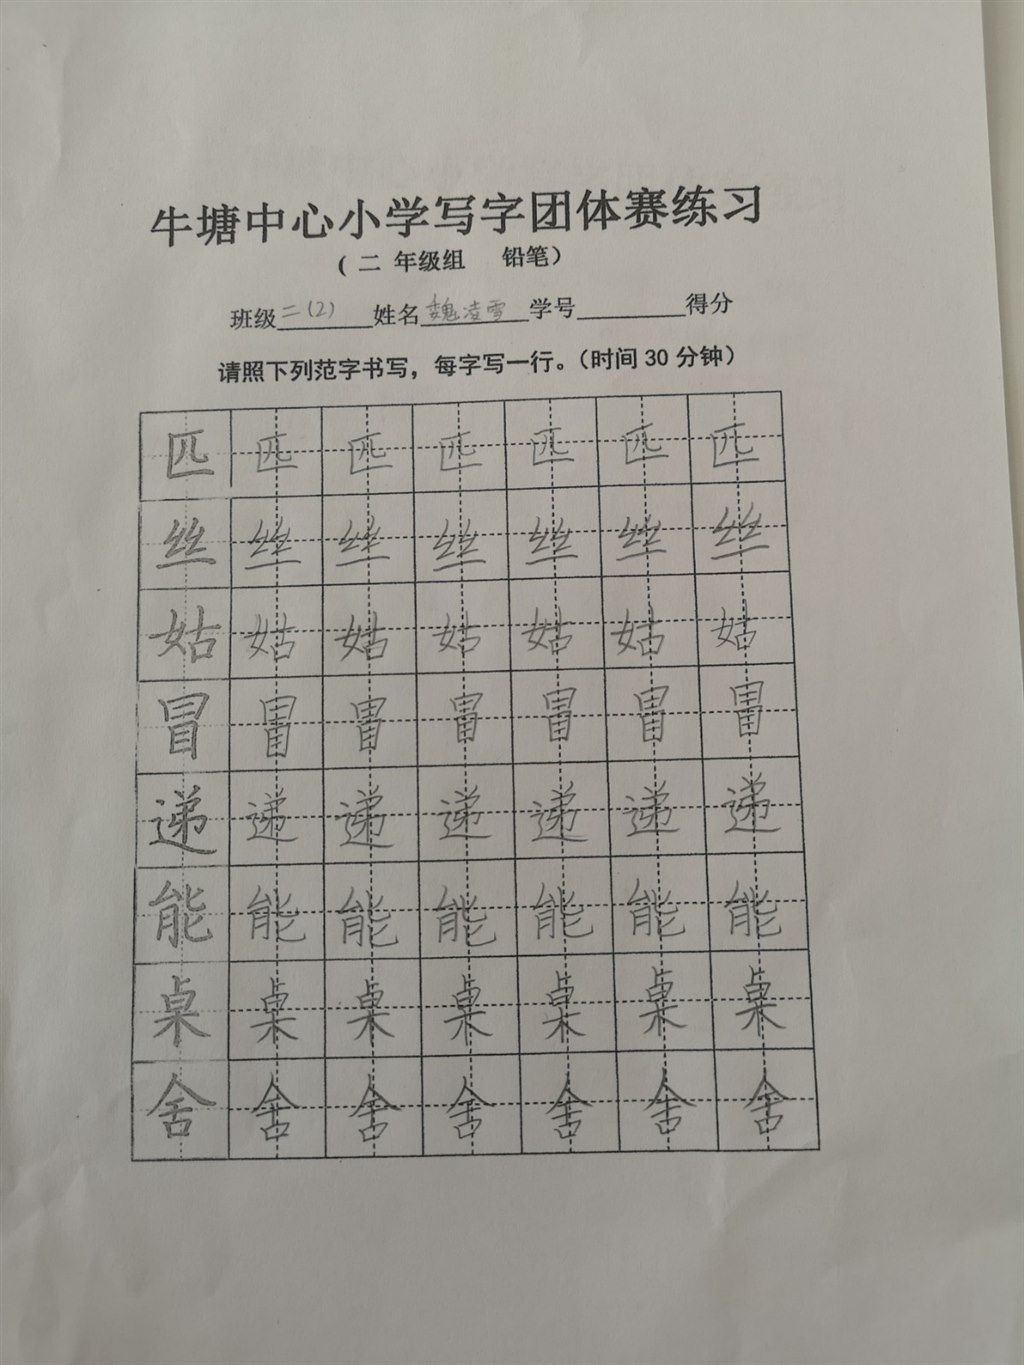 牛塘中心小学写字团体赛练习
( 二 年级组 铅笔）
班级二(2) 姓名魏凌雪学号________得分
请照下列范字书写，每字写一行。（时间 30 分钟）
匹 匹 匹 匹 匹 匹 匹
丝 丝 丝 丝 丝 丝 丝
姑 姑 姑 姑 姑 姑 姑
冒 冒 冒 冒 冒 冒 冒
递 递 递 递 递 递 递
能 能 能 能 能 能 能
桌 桌 桌 桌 桌 桌 桌
舍 舍 舍 舍 舍 舍 舍